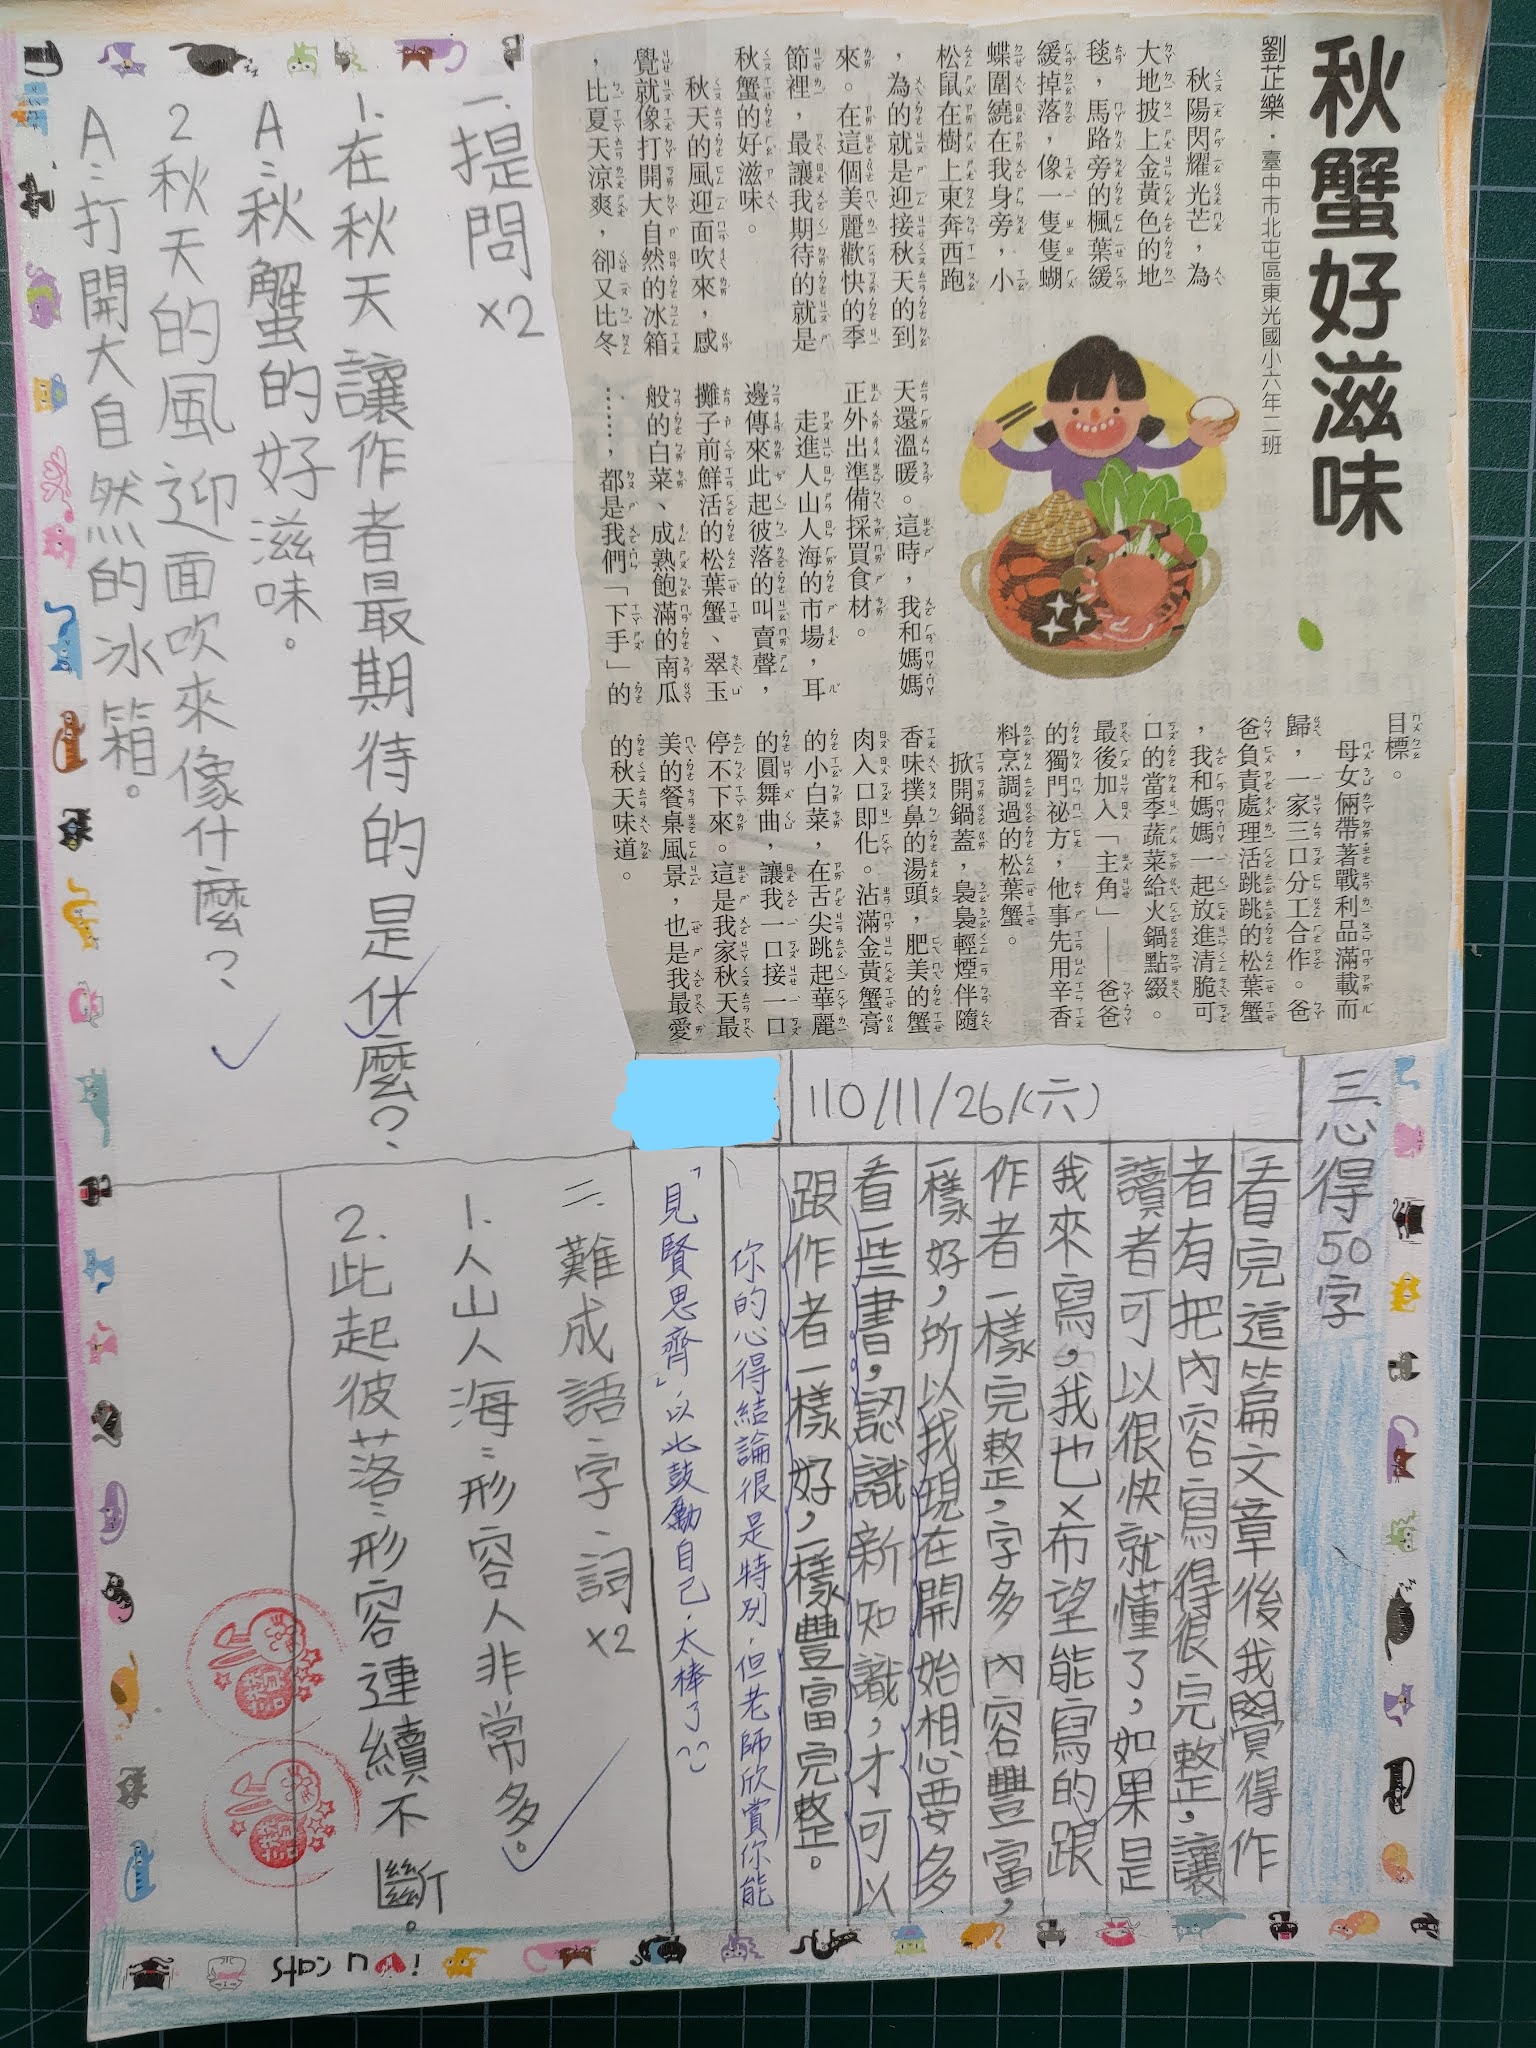 秋蟹好滋味
劉芷樂・臺中市北屯區東光國小六年二班
秋陽閃耀光芒，為
大地披上金黃色的地
毯，馬路旁的楓葉緩
緩掉落，像一隻隻蝴
蝶圍繞在我身旁，小
松鼠在樹上東奔西跑
，為的就是迎接秋天的到
來。在這個美麗歡快的季
節裡，最讓我期待的就是
秋蟹的好滋味。
秋天的風迎面吹來，感
覺就像打開大自然的冰箱
，比夏天涼爽，卻又比冬
天還溫暖。這時，我和媽媽
正外出準備採買食材。
走進人山人海的市場，耳
邊傳來此起彼落的叫賣聲，
攤子前鮮活的松葉蟹、翠玉
般的白菜、成熟飽滿的南瓜
……，都是我們「下手」的
目標。
母女倆帶著戰利品滿載而
歸，一家三口分工合作。爸
爸負責處理活跳跳的松葉蟹
，我和媽媽一起放進清脆可
口的當季蔬菜給火鍋點綴。
最後加入「主角」——爸爸
的獨門祕方，他事先用辛香
料烹調過的松葉蟹。
掀開鍋蓋，裊裊輕煙伴隨
香味撲鼻的湯頭，肥美的蟹
肉入口即化。沾滿金黃蟹膏
的小白菜，在舌尖跳起華麗
的圓舞曲，讓我一口接一口
停不下來。這是我家秋天最
美的餐桌風景，也是我最愛
的秋天味道。
一.提問x2
1.在秋天讓作者最期待的是什麼？
A：秋蟹的好滋味。
2秋天的風迎面吹來像什麼？
A：打開大自然的冰箱。
110/11/26/(六)
三.心得50字
看完這篇文章後我覺得作
者有把內容寫得很完整，讓
讀者可以很快就懂了，如果是
我來寫，我也ㄨ希望能寫的跟
作者一樣完整，字多內容豐富，
一樣好，所以我現在開始想要多
看一些書，認識新知識，才可以
跟作者一樣好，一樣豐富完整。
你的心得結論很是特別，但老師欣賞你能
「見賢思齊」，以此鼓勵自己，太棒了
二.難成語、字、詞x2
1.人山人海：形容人非常多。
2.此起彼落：形容連續不斷。
I ♥ u cats!